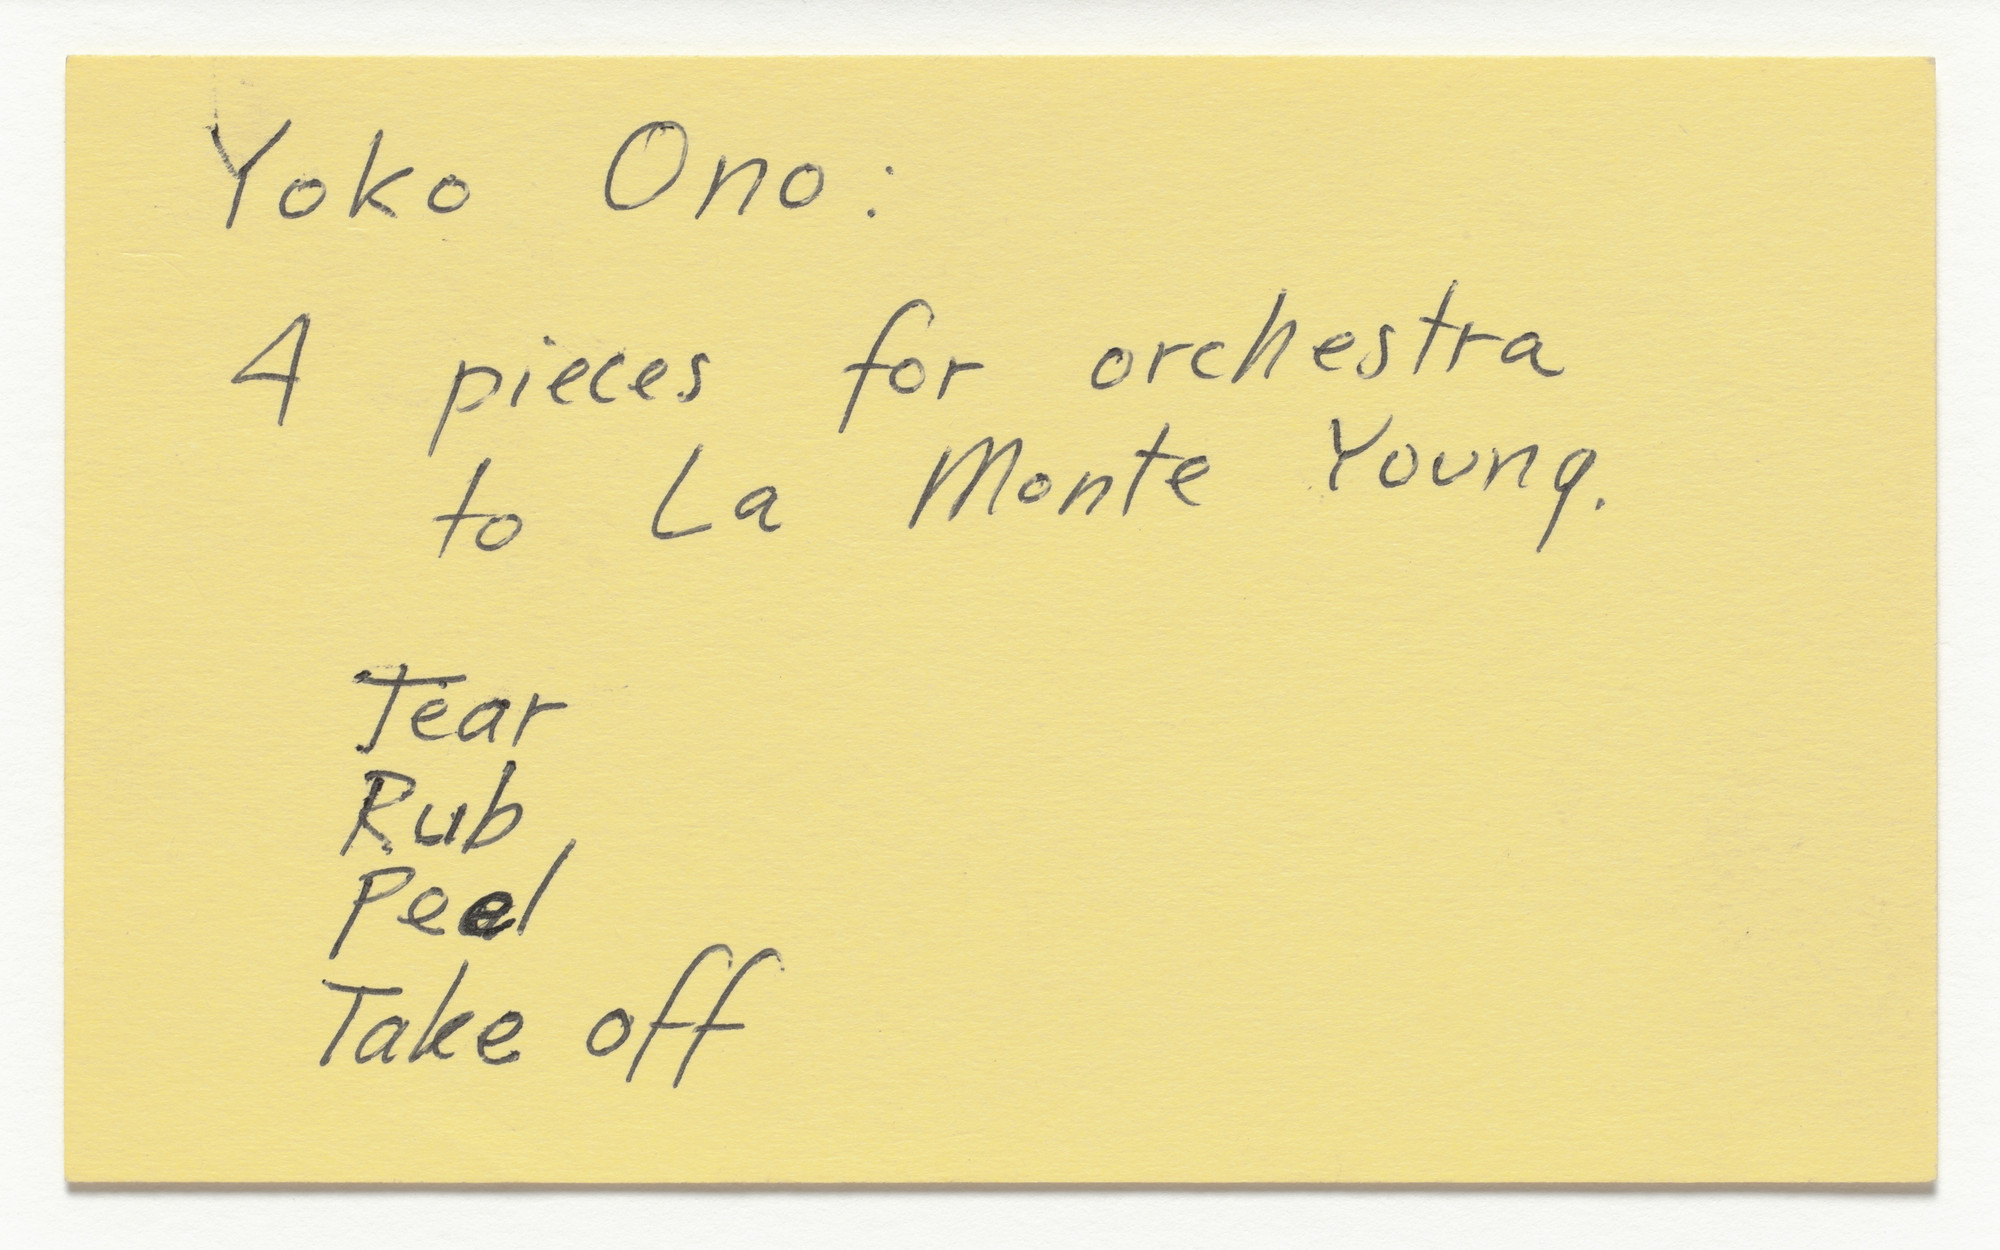 Yoko Ono:
4 pieces for orchestra
to La Monte Young.
Tear
Rub
Peel
Take off